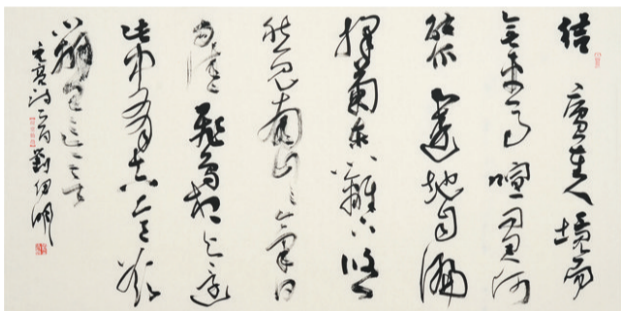 結廬在人境而
無車馬喧問君何
能爾心遠地自偏
採菊東籬下悠
然見南山山氣日
夕佳飛鳥相與還
此中有真意欲
辨已忘言
詩一首劉